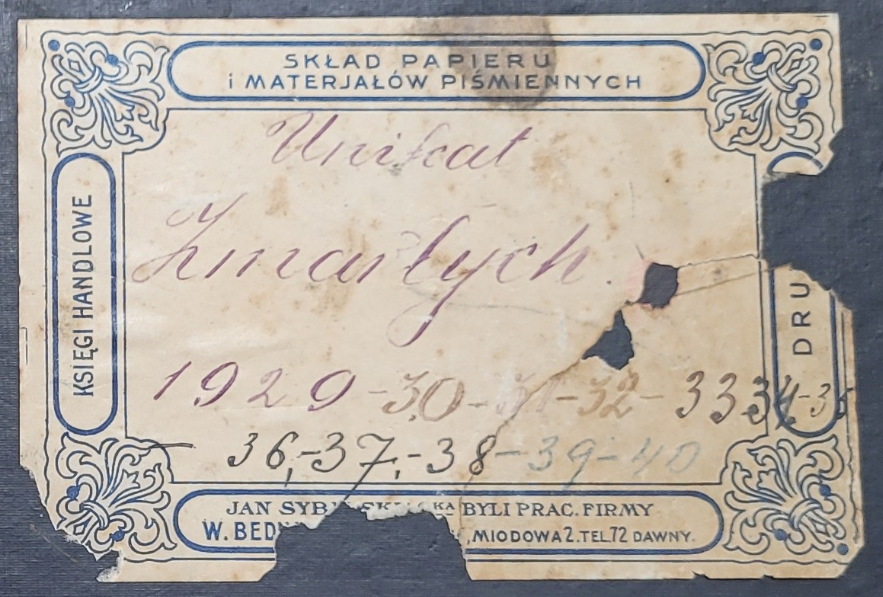 SKŁAD PAPIERU
i MATERJAŁÓW PIŚMIENNYCH
KSIĘGI HANDLOWE
Unikat
Zmarłych
1929-30-31-32-33 34-35
36,-37,-38-39-40
DRU
JAN SYB BYLI PRAC. FIRMY
W. BED , MIODOWA 2. TEL. 72 DAWNY.